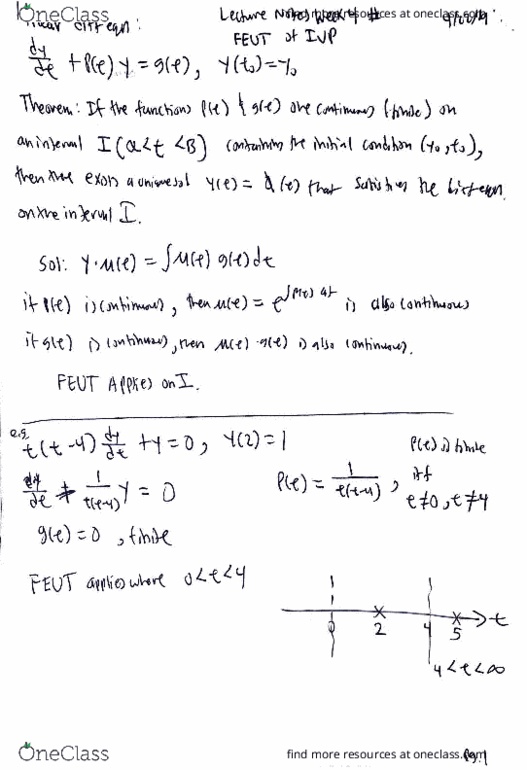 OneClass
find more resources at oneclass.com
linear diff eqn: Lecture Notes Week
FEUT of IVP
dy/dt + P(t) y = g(t), y(t₀) = y₀
Theorem: If the functions P(t) & g(t) are continuous (finite) on
an interval I (α<t<B) containing the initial condition (y₀,t₀),
then there exists a unique sol y(t) = (t) that satisfies the diff eqn.
on the interval I.
Sol: y·μ(t) = ∫μ(t) g(t) dt
if P(t) is continuous, then μ(t) = e^∫P(t) dt is also continuous
if g(t) is continuous, then μ(t)·g(t) is also continuous.
FEUT Applies on I.
e.g. t(t-4) dy/dt + y = 0, y(2) = 1 P(t) is finite
dy/dt + 1/t(t-4) y = 0 P(t) = 1/t(t-4), iff
t≠0, t≠4
g(t) = 0, finite
FEUT applies where 0<t<4
0 2 4 5 t
4<t<∞
OneClass
find more resources at oneclass.com